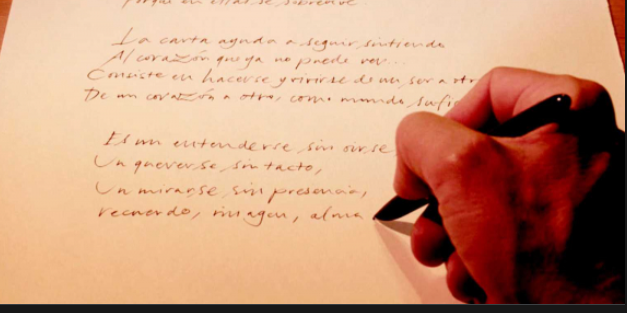 Porque en ellas se sobrevive
La carta ayuda a seguir sintiendo
Al corazón que ya no puede ver...
Consiste en hacerse y vivirse de un ser a otr
De un corazón a otro, como mundo sufic
Es un entenderse sin oirse
Un quererse sin tacto,
Un mirarse sin presencia,
recuerdo, imagen, alma